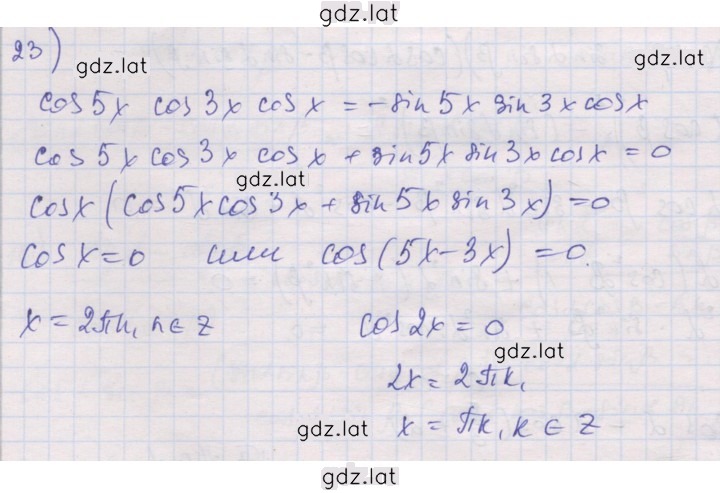 gdz.lat
23)
gdz.lat
gdz.lat
cos5x cos3x cosx = -sin5x sin3x cosx
cos5x cos3x cosx + sin5x sin3x cosx = 0
gdz.lat
cosx(cos5x cos3x + sin5x sin3x) = 0
cosx = 0 или cos(5x-3x) = 0.
x = 2πn, n ∈ Z cos2x = 0
gdz.lat
2x = 2πk,
gdz.lat
x = πk, k ∈ Z
gdz.lat